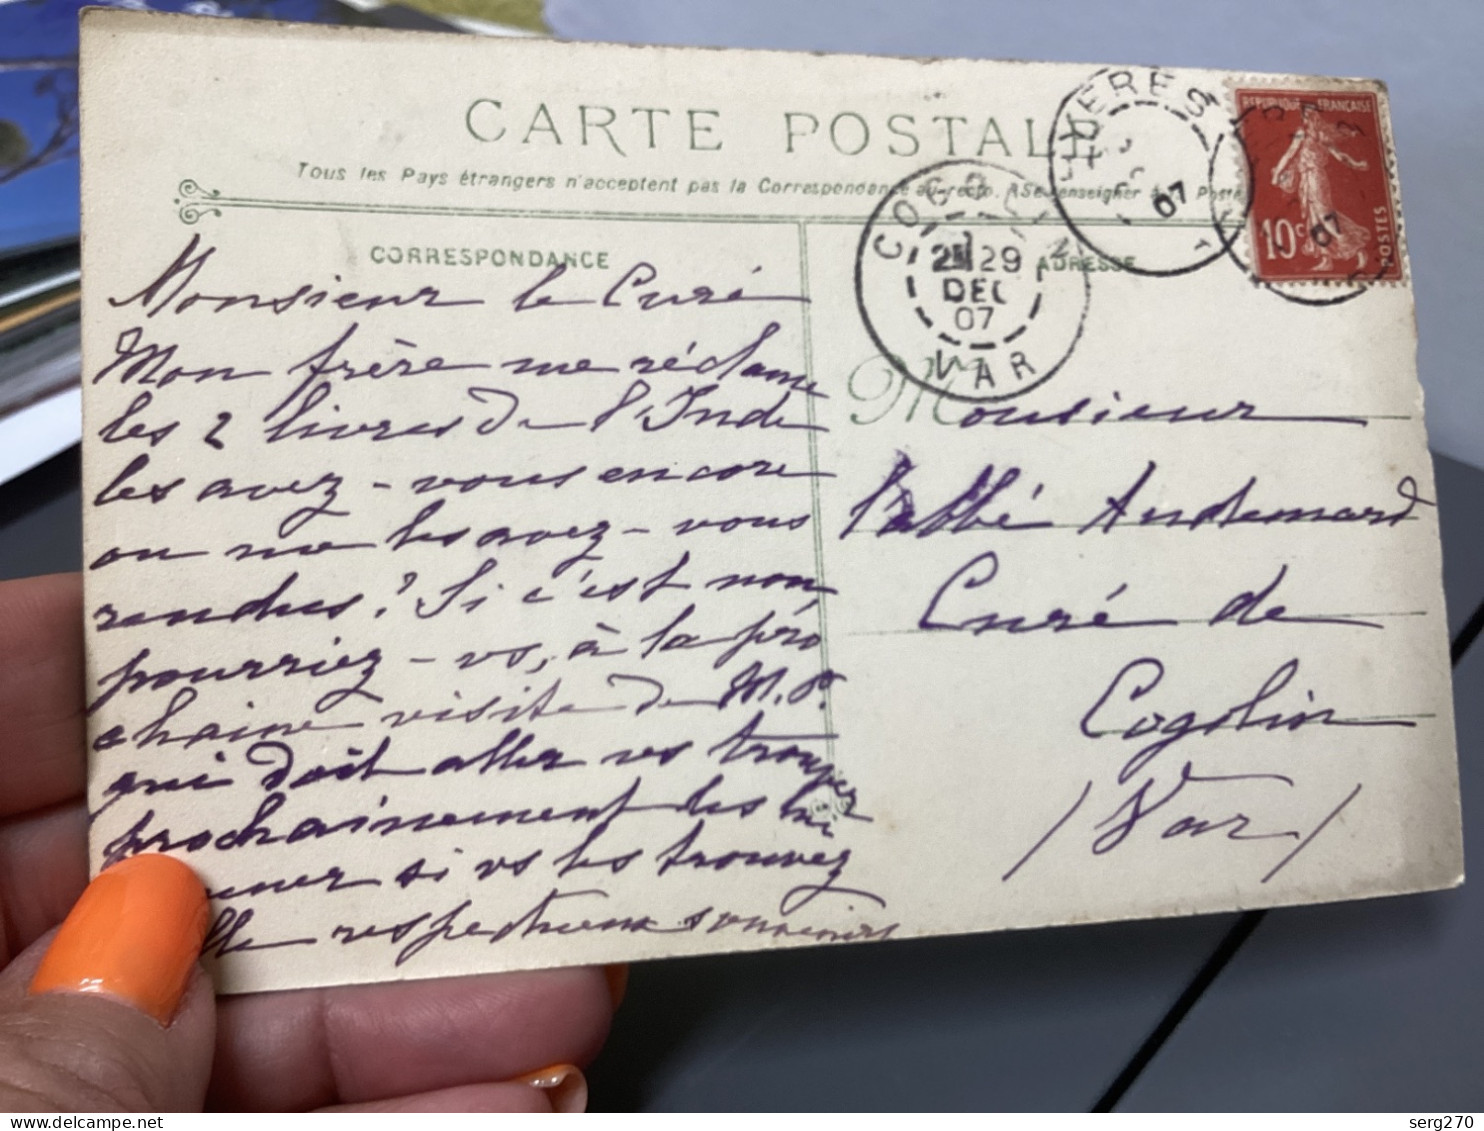 CARTE POSTALE
Tous les Pays étrangers n'acceptent pas la Correspondance au recto. Se renseigner à la Poste
CORRESPONDANCE
ADRESSE
COGOLIN
29
DEC
07
VAR
HYERES
07
REPUBLIQUE FRANÇAISE
10c
POSTES
07
Monsieur le Curé
Mon frère me réclame
les 2 livres de l'Inde
les avez-vous encore
ou me les avez-vous
rendus? Si c'est non
pourriez-vs, à la pro
chaine visite de M. P.
qui doit aller vs trouver
prochainement les lui
si vs les trouvez
respectueux souvenirs
Monsieur
l'abbé Audemard
Curé de
Cogolin
(Var)
serg270